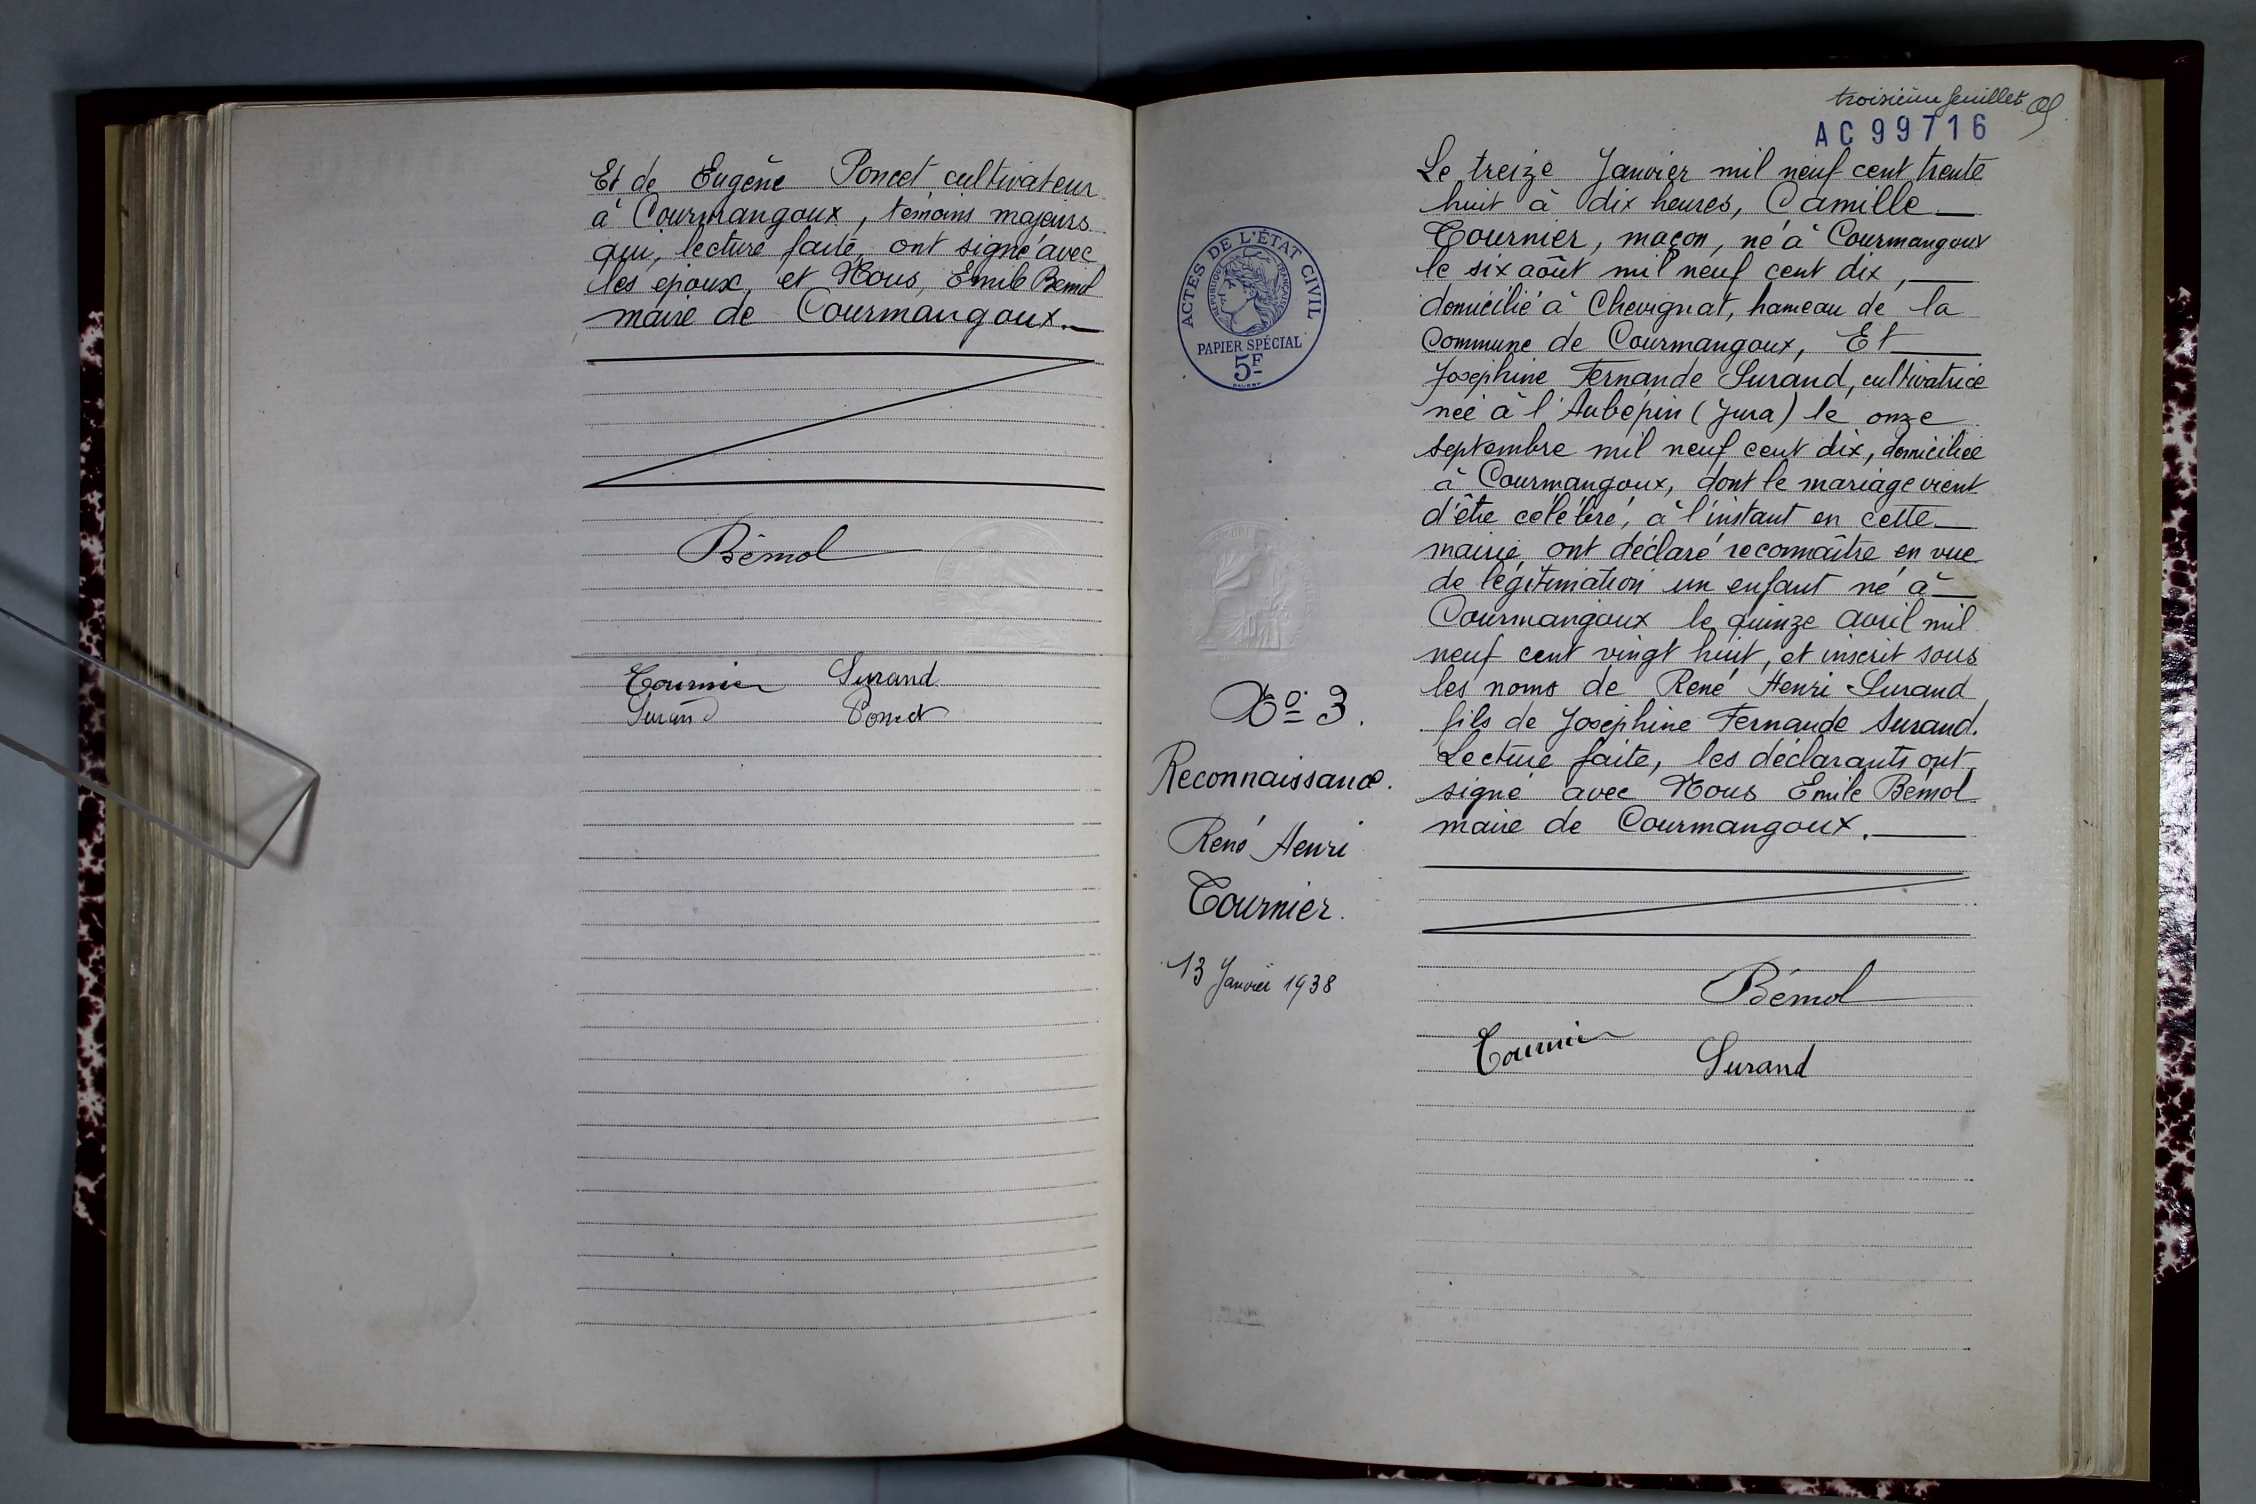 Et de Eugène Poncet cultivateur
à Courmangoux, témoins majeurs
qui, lecture faite, ont signé avec
les époux, et Nous, Emile Bémol
maire de Courmangoux.
Bémol
Tournier Surand
Surand Poncet
troisième feuillet
AC 99716
ACTES DE L'ÉTAT CIVIL
RÉPUBLIQUE FRANÇAISE
PAPIER SPÉCIAL
5F
No 3.
Reconnaissance.
René Henri
Tournier.
13 Janvier 1938
Le treize Janvier mil neuf cent trente
huit à dix heures, Camille
Tournier, maçon, né à Courmangoux
le six août mil neuf cent dix,
domicilié à Chevignat, hameau de la
Commune de Courmangoux, Et
Joséphine Fernande Surand, cultivatrice
née à l'Aubépin (Jura) le onze
septembre mil neuf cent dix, domiciliée
à Courmangoux, dont le mariage vient
d'être célébré, à l'instant en cette
mairie, ont déclaré reconnaître en vue
de légitimation un enfant né à
Courmangoux le quinze avril mil
neuf cent vingt huit, et inscrit sous
les noms de René Henri Surand
fils de Joséphine Fernande Surand.
Lecture faite, les déclarants ont
signé avec Nous Emile Bémol
maire de Courmangoux.
Bémol
Tournier
Surand